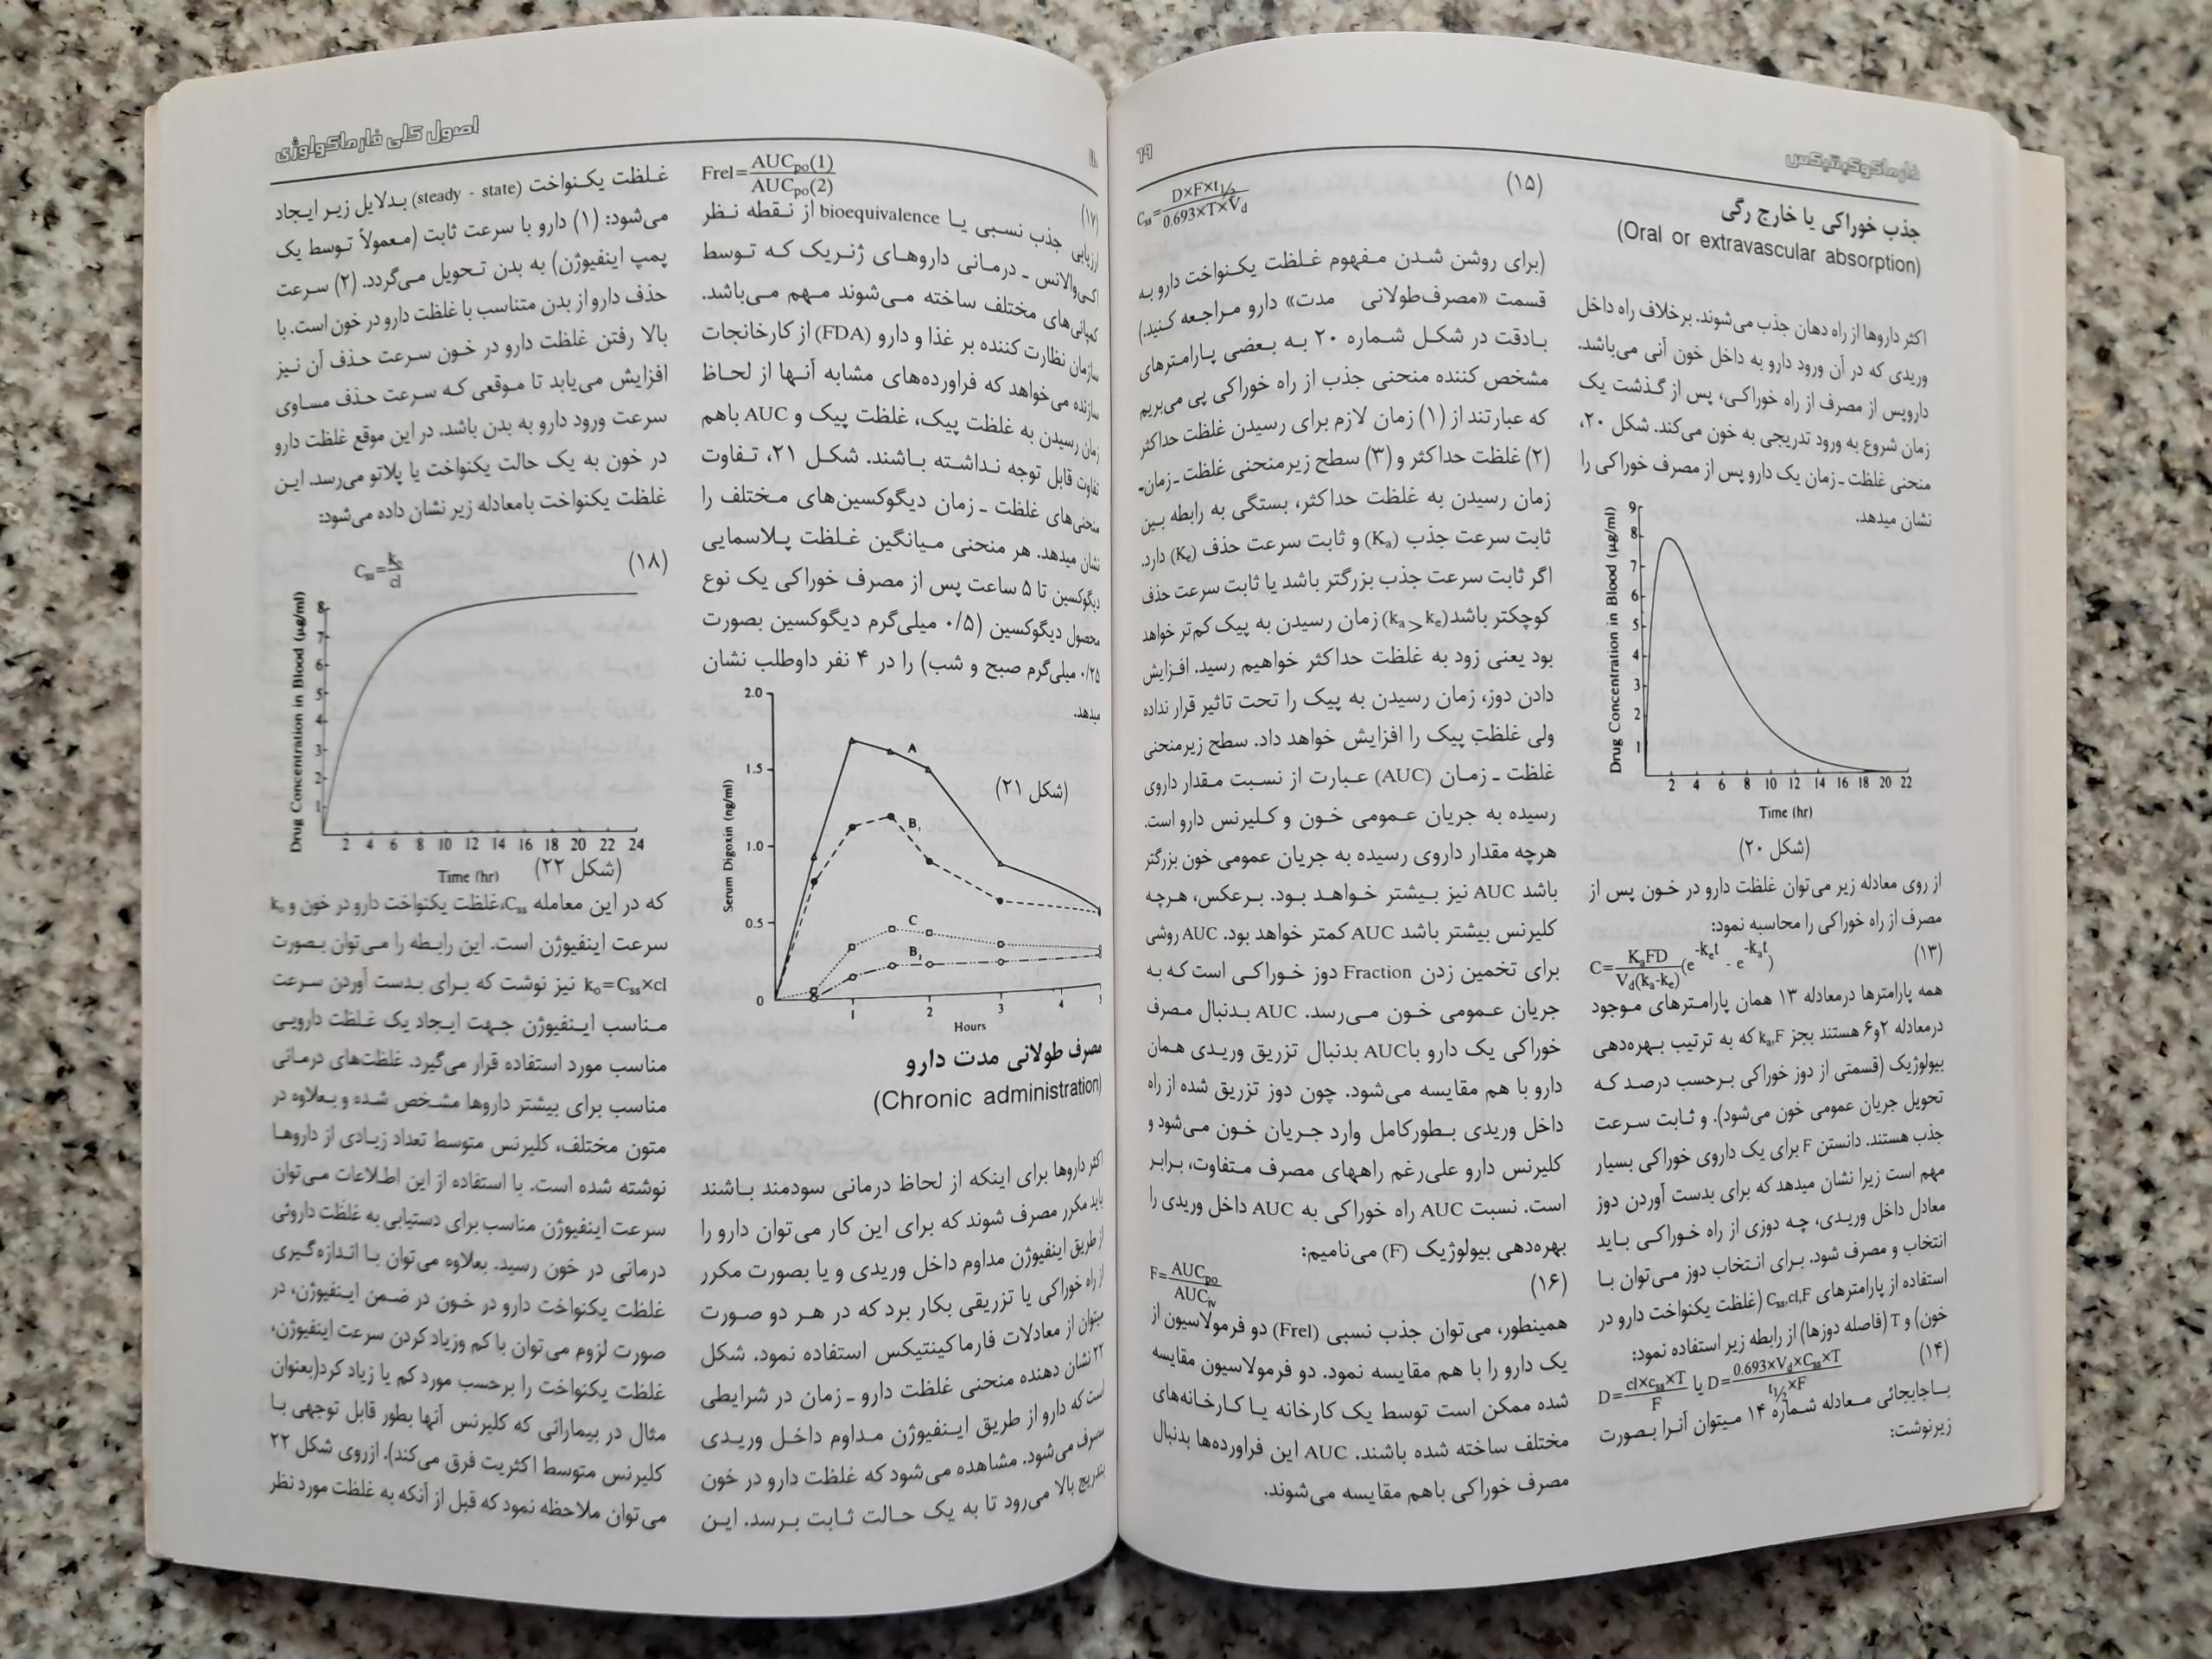 فارماکوکینتیکس
۶۹
جذب خوراکی یا خارج رگی
(Oral or extravascular absorption)
اکثر داروها از راه دهان جذب می‌شوند. برخلاف راه داخل
وریدی که در آن ورود دارو به داخل خون آنی می‌باشد.
داروپس از مصرف از راه خوراکی، پس از گذشت یک
زمان شروع به ورود تدریجی به خون می‌کند. شکل ۲۰،
منحنی غلظت ـ زمان یک دارو پس از مصرف خوراکی را
نشان میدهد.
Drug Concentration in Blood (µg/ml)
9
8
7
6
5
4
3
2
1
2 4 6 8 10 12 14 16 18 20 22
Time (hr)
(شکل ۲۰)
از روی معادله زیر می‌توان غلظت دارو در خون پس از
مصرف از راه خوراکی را محاسبه نمود:
(۱۳)
C=KaFD/Vd(ka-ke)(e-ket - e-kat)
همه پارامترها درمعادله ۱۳ همان پارامترهای موجود
درمعادله ۲و۶ هستند بجز ka,F که به ترتیب بهره‌دهی
بیولوژیک (قسمتی از دوز خوراکی برحسب درصد که
تحویل جریان عمومی خون می‌شود). و ثابت سرعت
جذب هستند. دانستن F برای یک داروی خوراکی بسیار
مهم است زیرا نشان میدهد که برای بدست آوردن دوز
معادل داخل وریدی، چه دوزی از راه خوراکی باید
انتخاب و مصرف شود. برای انتخاب دوز می‌توان با
استفاده از پارامترهای Css,cl,F (غلظت یکنواخت دارو در
خون) و T (فاصله دوزها) از رابطه زیر استفاده نمود:
(۱۴)
D=cl×css×T/F یا D=0.693×Vd×Css×T/t½×F
باجابجائی معادله شماره ۱۴ میتوان آنرا بصورت
زیرنوشت:
(۱۵)
Css=D×F×t½/0.693×T×Vd
(برای روشن شدن مفهوم غلظت یکنواخت دارو به
قسمت «مصرف‌طولانی مدت» دارو مراجعه کنید.)
بادقت در شکل شماره ۲۰ به بعضی پارامترهای
مشخص کننده منحنی جذب از راه خوراکی پی می‌بریم
که عبارتند از (۱) زمان لازم برای رسیدن غلظت حداکثر
(۲) غلظت حداکثر و (۳) سطح زیرمنحنی غلظت ـ زمان.
زمان رسیدن به غلظت حداکثر، بستگی به رابطه بین
ثابت سرعت جذب (Ka) و ثابت سرعت حذف (Ke) دارد.
اگر ثابت سرعت جذب بزرگتر باشد یا ثابت سرعت حذف
کوچکتر باشد (ka>ke) زمان رسیدن به پیک کم‌تر خواهد
بود یعنی زود به غلظت حداکثر خواهیم رسید. افزایش
دادن دوز، زمان رسیدن به پیک را تحت تاثیر قرار نداده
ولی غلظت پیک را افزایش خواهد داد. سطح زیرمنحنی
غلظت ـ زمان (AUC) عبارت از نسبت مقدار داروی
رسیده به جریان عمومی خون و کلیرنس دارو است.
هرچه مقدار داروی رسیده به جریان عمومی خون بزرگتر
باشد AUC نیز بیشتر خواهد بود. برعکس، هرچه
کلیرنس بیشتر باشد AUC کمتر خواهد بود. AUC روشی
برای تخمین زدن Fraction دوز خوراکی است که به
جریان عمومی خون می‌رسد. AUC بدنبال مصرف
خوراکی یک دارو با AUC بدنبال تزریق وریدی همان
دارو با هم مقایسه می‌شود. چون دوز تزریق شده از راه
داخل وریدی بطورکامل وارد جریان خون می‌شود و
کلیرنس دارو علی‌رغم راههای مصرف متفاوت، برابر
است. نسبت AUC راه خوراکی به AUC داخل وریدی را
بهره‌دهی بیولوژیک (F) می‌نامیم:
(۱۶)
F=AUCpo/AUCiv
همینطور، می‌توان جذب نسبی (Frel) دو فرمولاسیون از
یک دارو را با هم مقایسه نمود. دو فرمولاسیون مقایسه
شده ممکن است توسط یک کارخانه یا کارخانه‌های
مختلف ساخته شده باشند. AUC این فراورده‌ها بدنبال
مصرف خوراکی باهم مقایسه می‌شوند.
اصول کلی فارماکولوژی
Frel=AUCpo(1)/AUCpo(2)
(۱۷)
ارزیابی جذب نسبی یا bioequivalence از نقطه نظر
اکی‌والانس ـ درمانی داروهای ژنریک که توسط
کمپانی‌های مختلف ساخته می‌شوند مهم می‌باشد.
سازمان نظارت کننده بر غذا و دارو (FDA) از کارخانجات
سازنده می‌خواهد که فراورده‌های مشابه آنها از لحاظ
زمان رسیدن به غلظت پیک، غلظت پیک و AUC باهم
تفاوت قابل توجه نداشته باشند. شکل ۲۱، تفاوت
منحنی‌های غلظت ـ زمان دیگوکسین‌های مختلف را
نشان میدهد. هر منحنی میانگین غلظت پلاسمایی
دیگوکسین تا ۵ ساعت پس از مصرف خوراکی یک نوع
محصول دیگوکسین (۰/۵ میلی‌گرم دیگوکسین بصورت
۰/۲۵ میلی‌گرم صبح و شب) را در ۴ نفر داوطلب نشان
میدهد.
Serum Digoxin (ng/ml)
2.0
1.5
1.0
0.5
0
A
B1
C
B2
(شکل ۲۱)
1 2 3 4 5
Hours
مصرف طولانی مدت دارو
(Chronic administration)
اکثر داروها برای اینکه از لحاظ درمانی سودمند باشند
باید مکرر مصرف شوند که برای این کار می‌توان دارو را
از طریق اینفیوژن مداوم داخل وریدی و یا بصورت مکرر
از راه خوراکی یا تزریقی بکار برد که در هر دو صورت
میتوان از معادلات فارماکینتیکس استفاده نمود. شکل
۲۲ نشان دهنده منحنی غلظت دارو ـ زمان در شرایطی
است که دارو از طریق اینفیوژن مداوم داخل وریدی
مصرف می‌شود. مشاهده می‌شود که غلظت دارو در خون
بتدریج بالا می‌رود تا به یک حالت ثابت برسد. این
غلظت یکنواخت (steady - state) بدلایل زیر ایجاد
می‌شود: (۱) دارو با سرعت ثابت (معمولاً توسط یک
پمپ اینفیوژن) به بدن تحویل می‌گردد. (۲) سرعت
حذف دارو از بدن متناسب با غلظت دارو در خون است. با
بالا رفتن غلظت دارو در خون سرعت حذف آن نیز
افزایش می‌یابد تا موقعی که سرعت حذف مساوی
سرعت ورود دارو به بدن باشد. در این موقع غلظت دارو
در خون به یک حالت یکنواخت یا پلاتو می‌رسد. این
غلظت یکنواخت بامعادله زیر نشان داده می‌شود:
(۱۸)
Css=ko/cl
Drug Concentration in Blood (µg/ml)
8
7
6
5
4
3
2
1
2 4 6 8 10 12 14 16 18 20 22 24
Time (hr)
(شکل ۲۲)
که در این معامله Css،غلظت یکنواخت دارو در خون و ko
سرعت اینفیوژن است. این رابطه را می‌توان بصورت
ko=Css×cl نیز نوشت که برای بدست آوردن سرعت
مناسب اینفیوژن جهت ایجاد یک غلظت دارویی
مناسب مورد استفاده قرار می‌گیرد. غلظت‌های درمانی
مناسب برای بیشتر داروها مشخص شده و بعلاوه در
متون مختلف، کلیرنس متوسط تعداد زیادی از داروها
نوشته شده است. با استفاده از این اطلاعات می‌توان
سرعت اینفیوژن مناسب برای دستیابی به غلظت داروئی
درمانی در خون رسید. بعلاوه می‌توان با اندازه‌گیری
غلظت یکنواخت دارو در خون در ضمن اینفیوژن، در
صورت لزوم می‌توان با کم وزیاد کردن سرعت اینفیوژن،
غلظت یکنواخت را برحسب مورد کم یا زیاد کرد(بعنوان
مثال در بیمارانی که کلیرنس آنها بطور قابل توجهی با
کلیرنس متوسط اکثریت فرق می‌کند). ازروی شکل ۲۲
می‌توان ملاحظه نمود که قبل از آنکه به غلظت مورد نظر